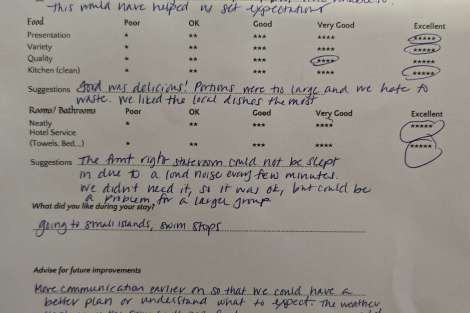 this would have helped us set expectations
Food Poor OK Good Very Good Excellent
Presentation * ** *** **** *****
Variety * ** *** **** *****
Quality * ** *** **** *****
Kitchen (clean) * ** *** **** *****
Suggestions Food was delicious! Portions were too large and we hate to
waste. We liked the local dishes the most
Rooms/Bathrooms Poor OK Good Very Good Excellent
Neatly * ** *** **** *****
Hotel Service
(Towels, Bed...) * ** *** **** *****
Suggestions The front right stateroom could not be slept
in due to a loud noise every few minutes.
We didn't need it, so it was ok, but could be
a problem for a larger group
What did you like during your stay?
going to small islands, swim stops
Advise for future improvements
More communication earlier on so that we could have a
better plan or understand what to expect. The weather